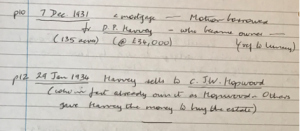 p10 7 Dec. 1931 a mortgage — Motion borrowed
to P.P. Harvey — who became owner —
(135 acres) (@ £34,000)
p12 29 Jan 1934 Harvey sells to C. J.W. Hopwood
(who in fact already own it as Hopwood
gave Harvey the money to buy the estate)